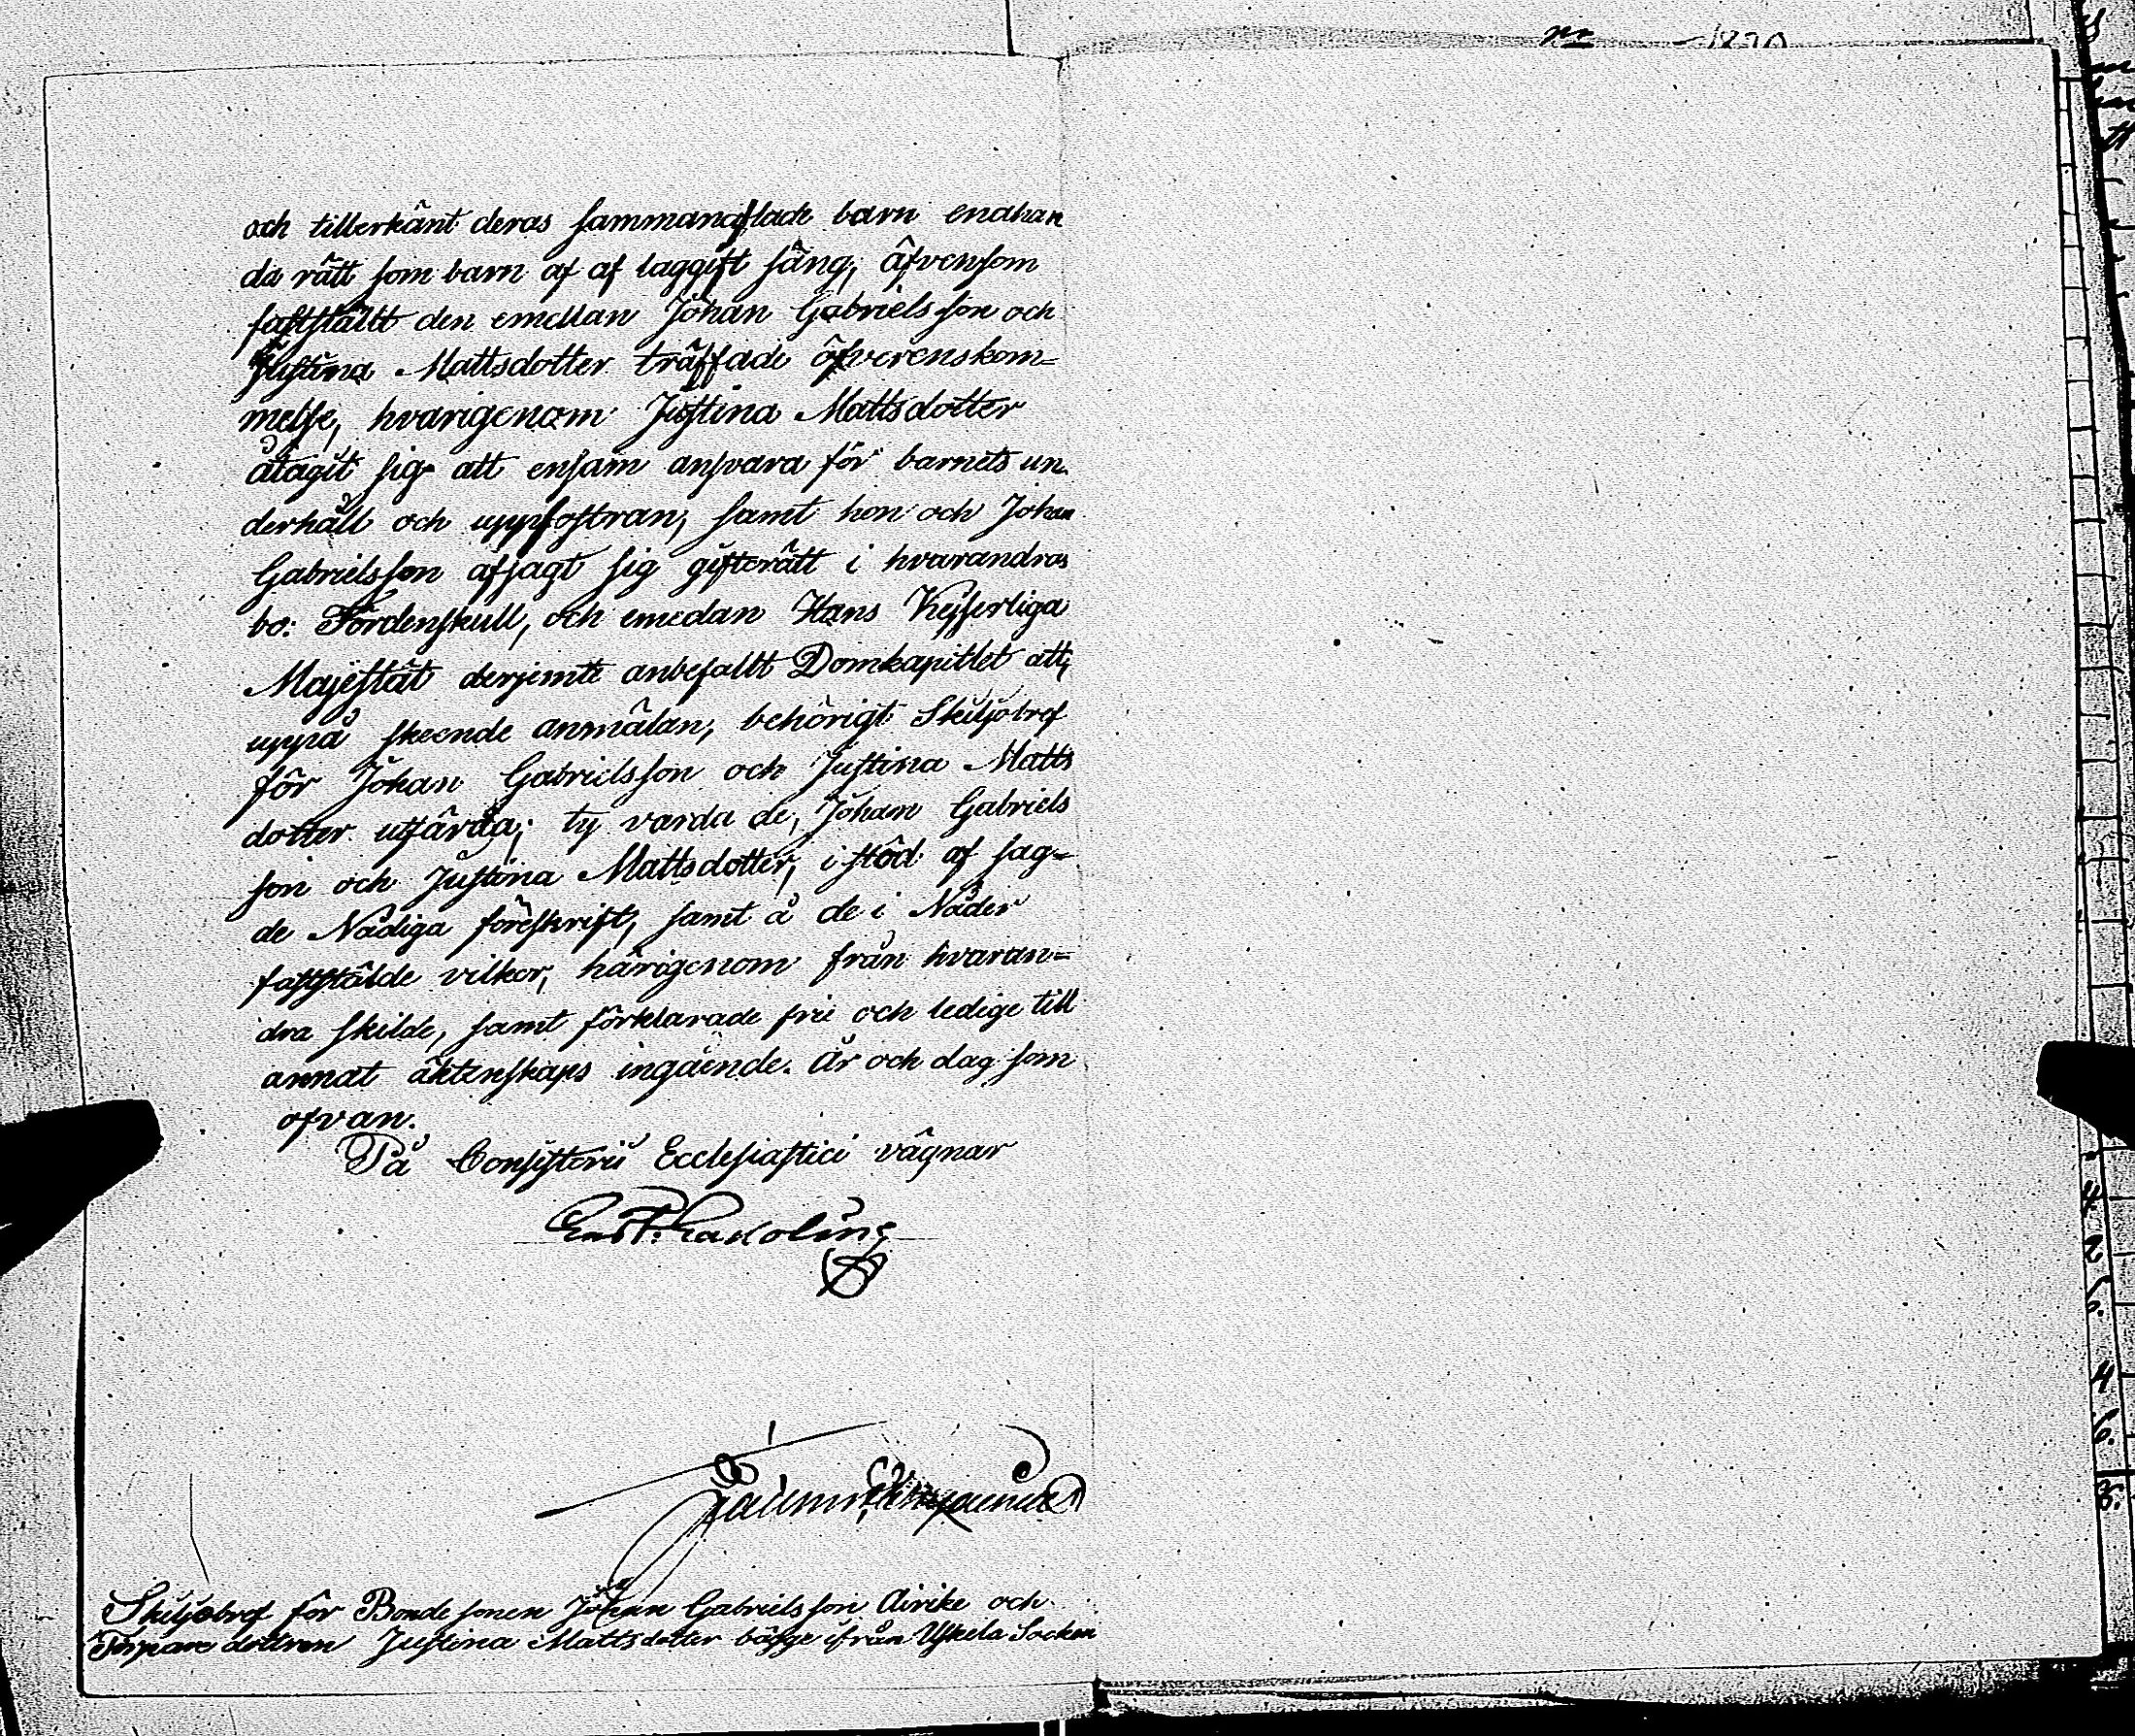 och tillerkänt deras sammanaflade barn enahan
da rätt som barn af af laggift säng, äfvensom
faststält den emellan Johan Gabrielsson och
Justina Mattsdotter träffade öfverenskom-
melse, hvarigenom Justina Mattsdotter
åtagit sig att ensam ansvara för barnets un
derhåll och uppfostran, samt hon och Johan
Gabrielsson afsagt sig giftorätt i hvarandras
bo: Fördenskull, och emedan Hans Kejserliga
Majestät derjemte anbefallt Domkapitlet att,
uppå skeende anmälan, behörigt Skiljobref
för Johan Gabrielsson och Justina Matts
dotter utfärda; ty varda de, Johan Gabriels
son och Justina Mattsdotter, i stöd af sag-
de Nådiga föreskrift, samt å de i Nåder
fastställde vilkor, härigenom från hvaran-
dra skilde, samt förklarade frie och ledige till
annat äktenskaps ingående. År och dag som
ofvan.
På Consistorii Ecclesiastici vägnar
Skiljobref för Bonde sonen Johan Gabrielsson Airike och
Torpare dottren Justina Mattsdotter bägge ifrån Uskela Socken
1820